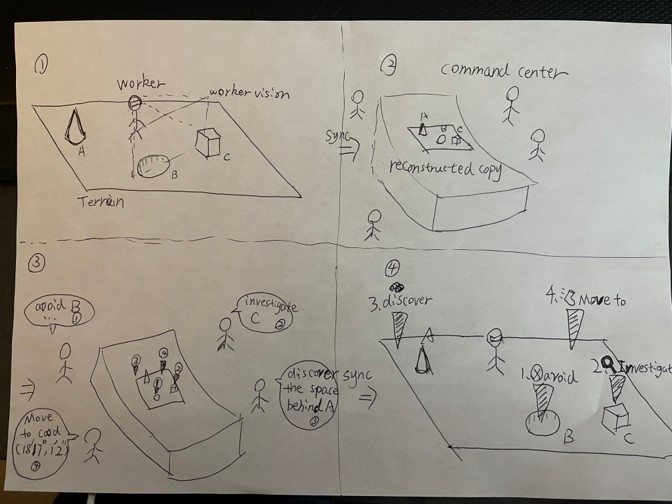 ①
worker
worker vision
A
B
C
Terrain
②
command center
sync
A
B
C
reconstructed copy
③
avoid B
...
①
investigate
C
②
discover
the space
behind A
③
Move
to cood
④
sync
④
3. discover
4. Move to
A
1. avoid
2. Investigat
B
C